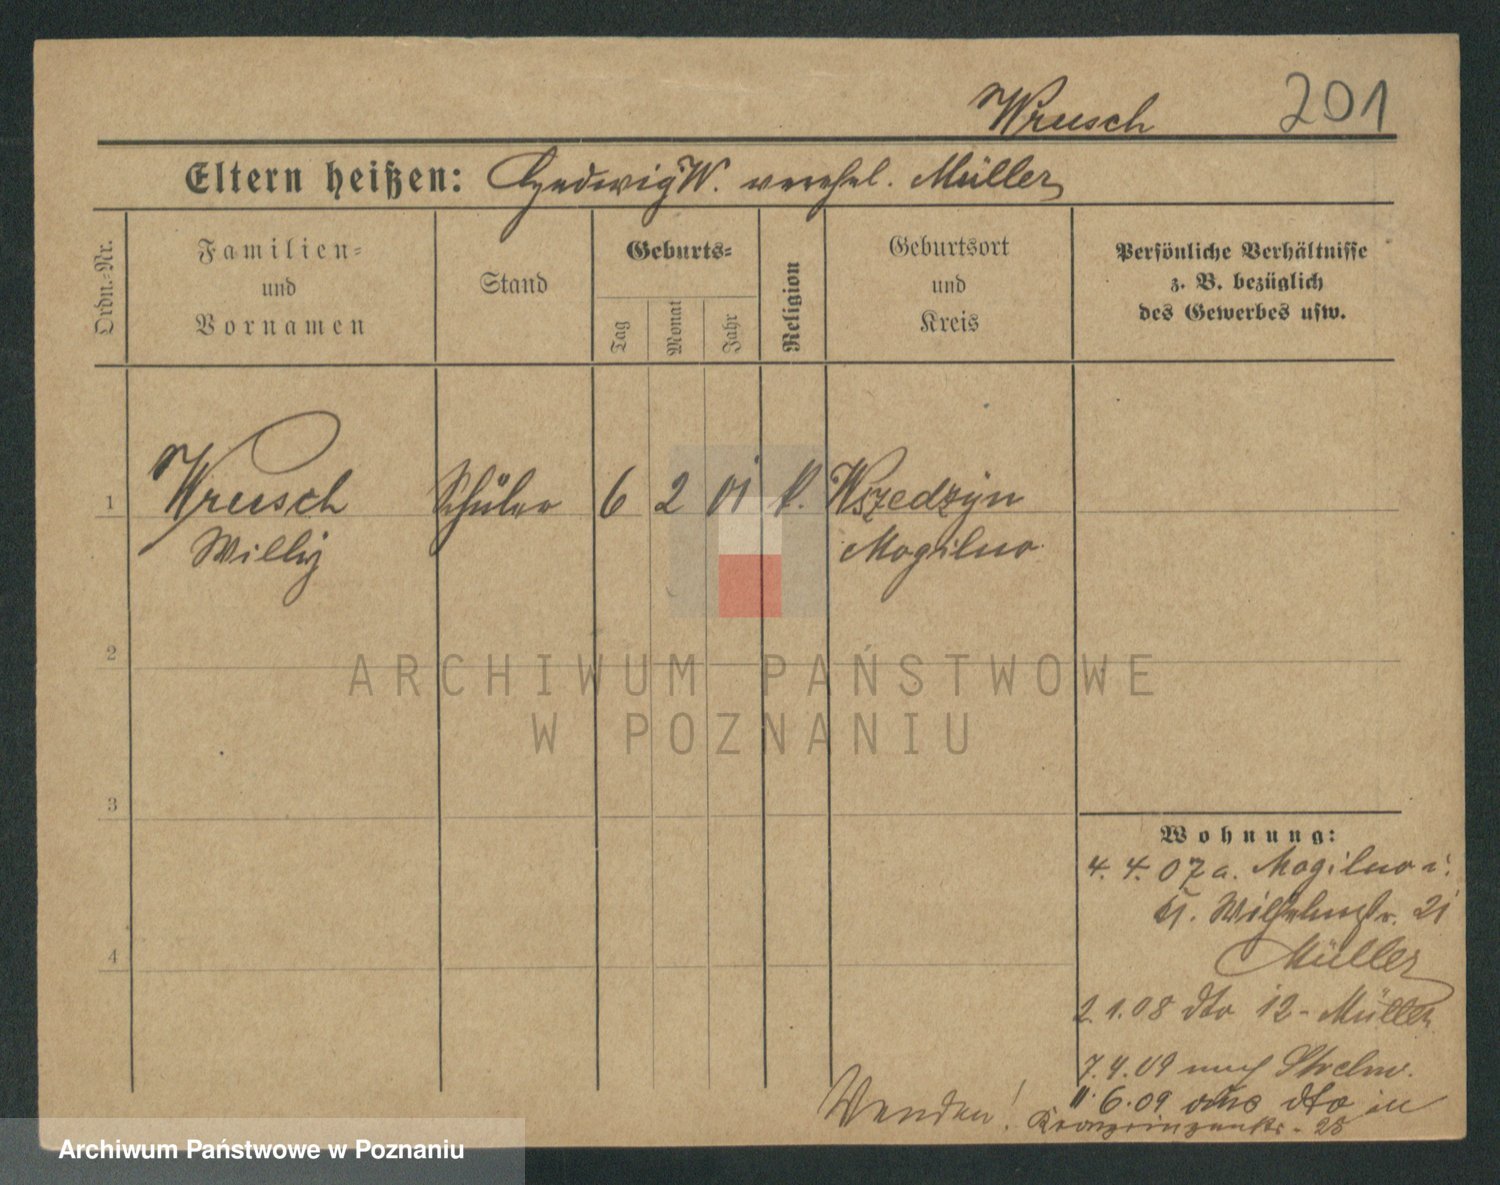 Wrusch 201
Eltern heißen: Hedwig W. verehel. Müller
Ordn.-Nr.
Familien-
und
Vornamen
Stand
Geburts-
Tag
Monat
Jahr
Religion
Geburtsort
und
Kreis
Persönliche Verhältnisse
z. B. bezüglich
des Gewerbes usw.
1 Wrusch Schüler 6 2 01 k. Wszedzyn
Willy Mogilno
2
ARCHIWUM PAŃSTWOWE
W POZNANIU
3
Wohnung:
4. 4. 07 a. Mogilno i.
Wilhelmstr. 21
4
Müller
2. 1. 08 dto 12 - Müller
7. 4. 09 nach Strelno.
6. 09 aus dto in
Wenden! Kronprinzenstr. 28
Archiwum Państwowe w Poznaniu